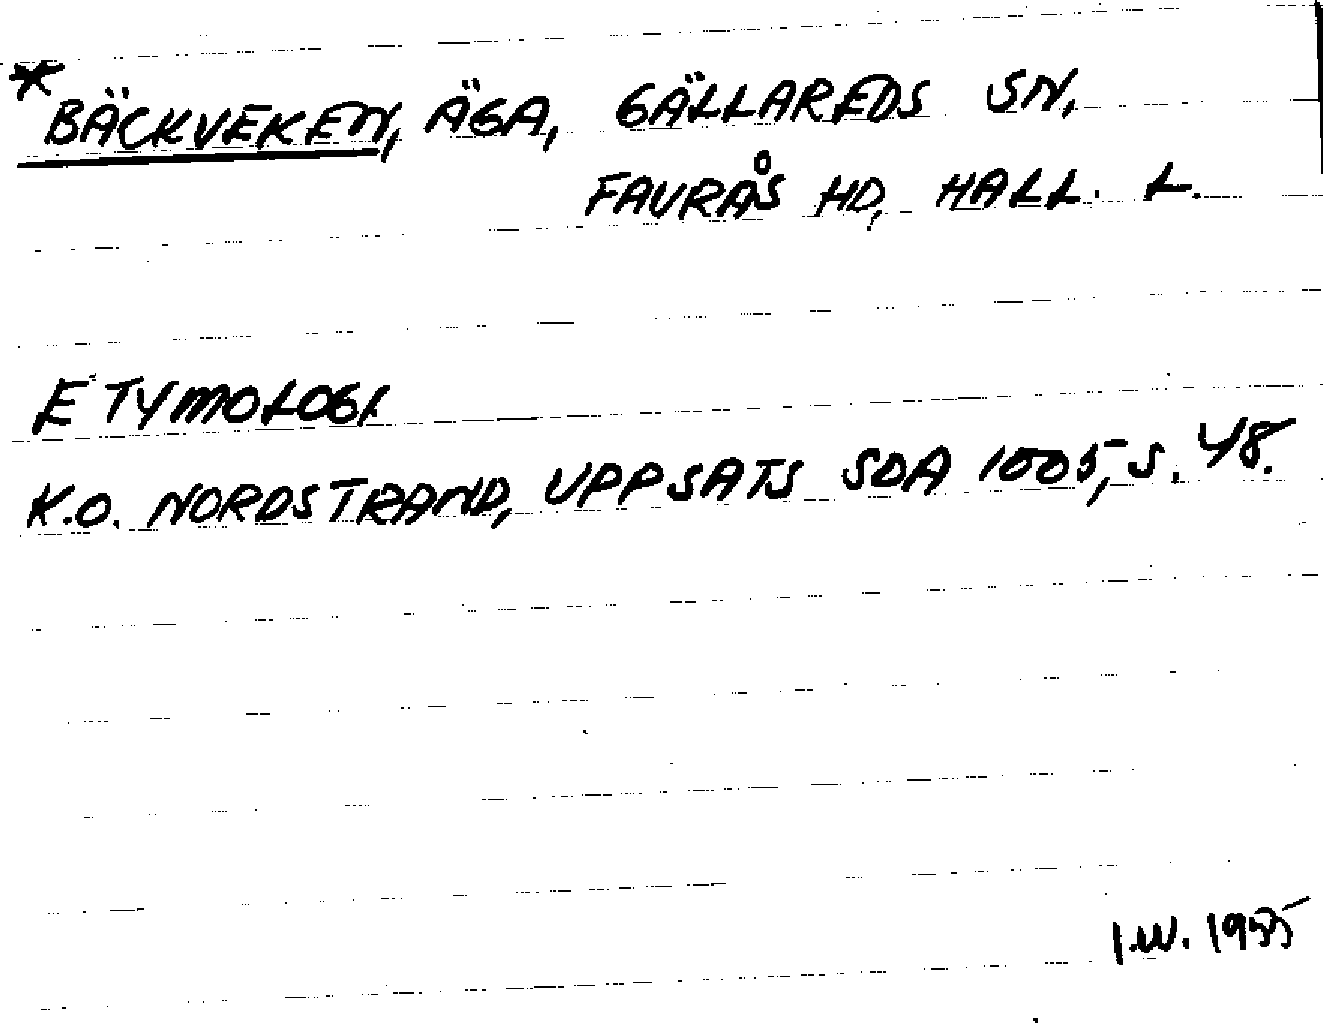 *BÄCKVEKEN, ÄGA, GÄLLAREDS SN,
FAURÅS HD, HALL. L.
ETYMOLOGI.
K.O. NORDSTRAND, UPPSATS SDA 1005, S. 48.
I.W. 1955